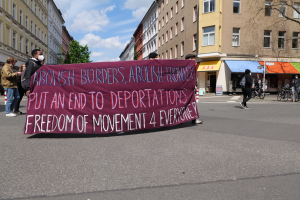 ABOLISH BORDERS, ABOLISH FRONTEX
PUT AN END TO DEPORTATIONS
FREEDOM OF MOVEMENT 4 EVERYONE!